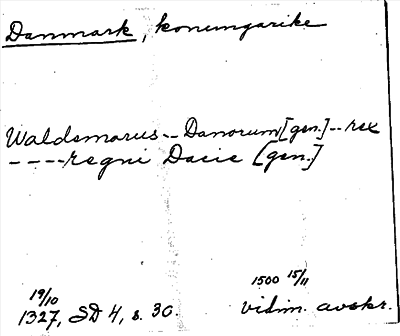 Danmark, konungarike
Waldemarus -- Danorum [gen.] -- rex
---- regni Dacie [gen.]
19/10 1500 15/11
1327, SD 4, s. 30. vidim. avskr.